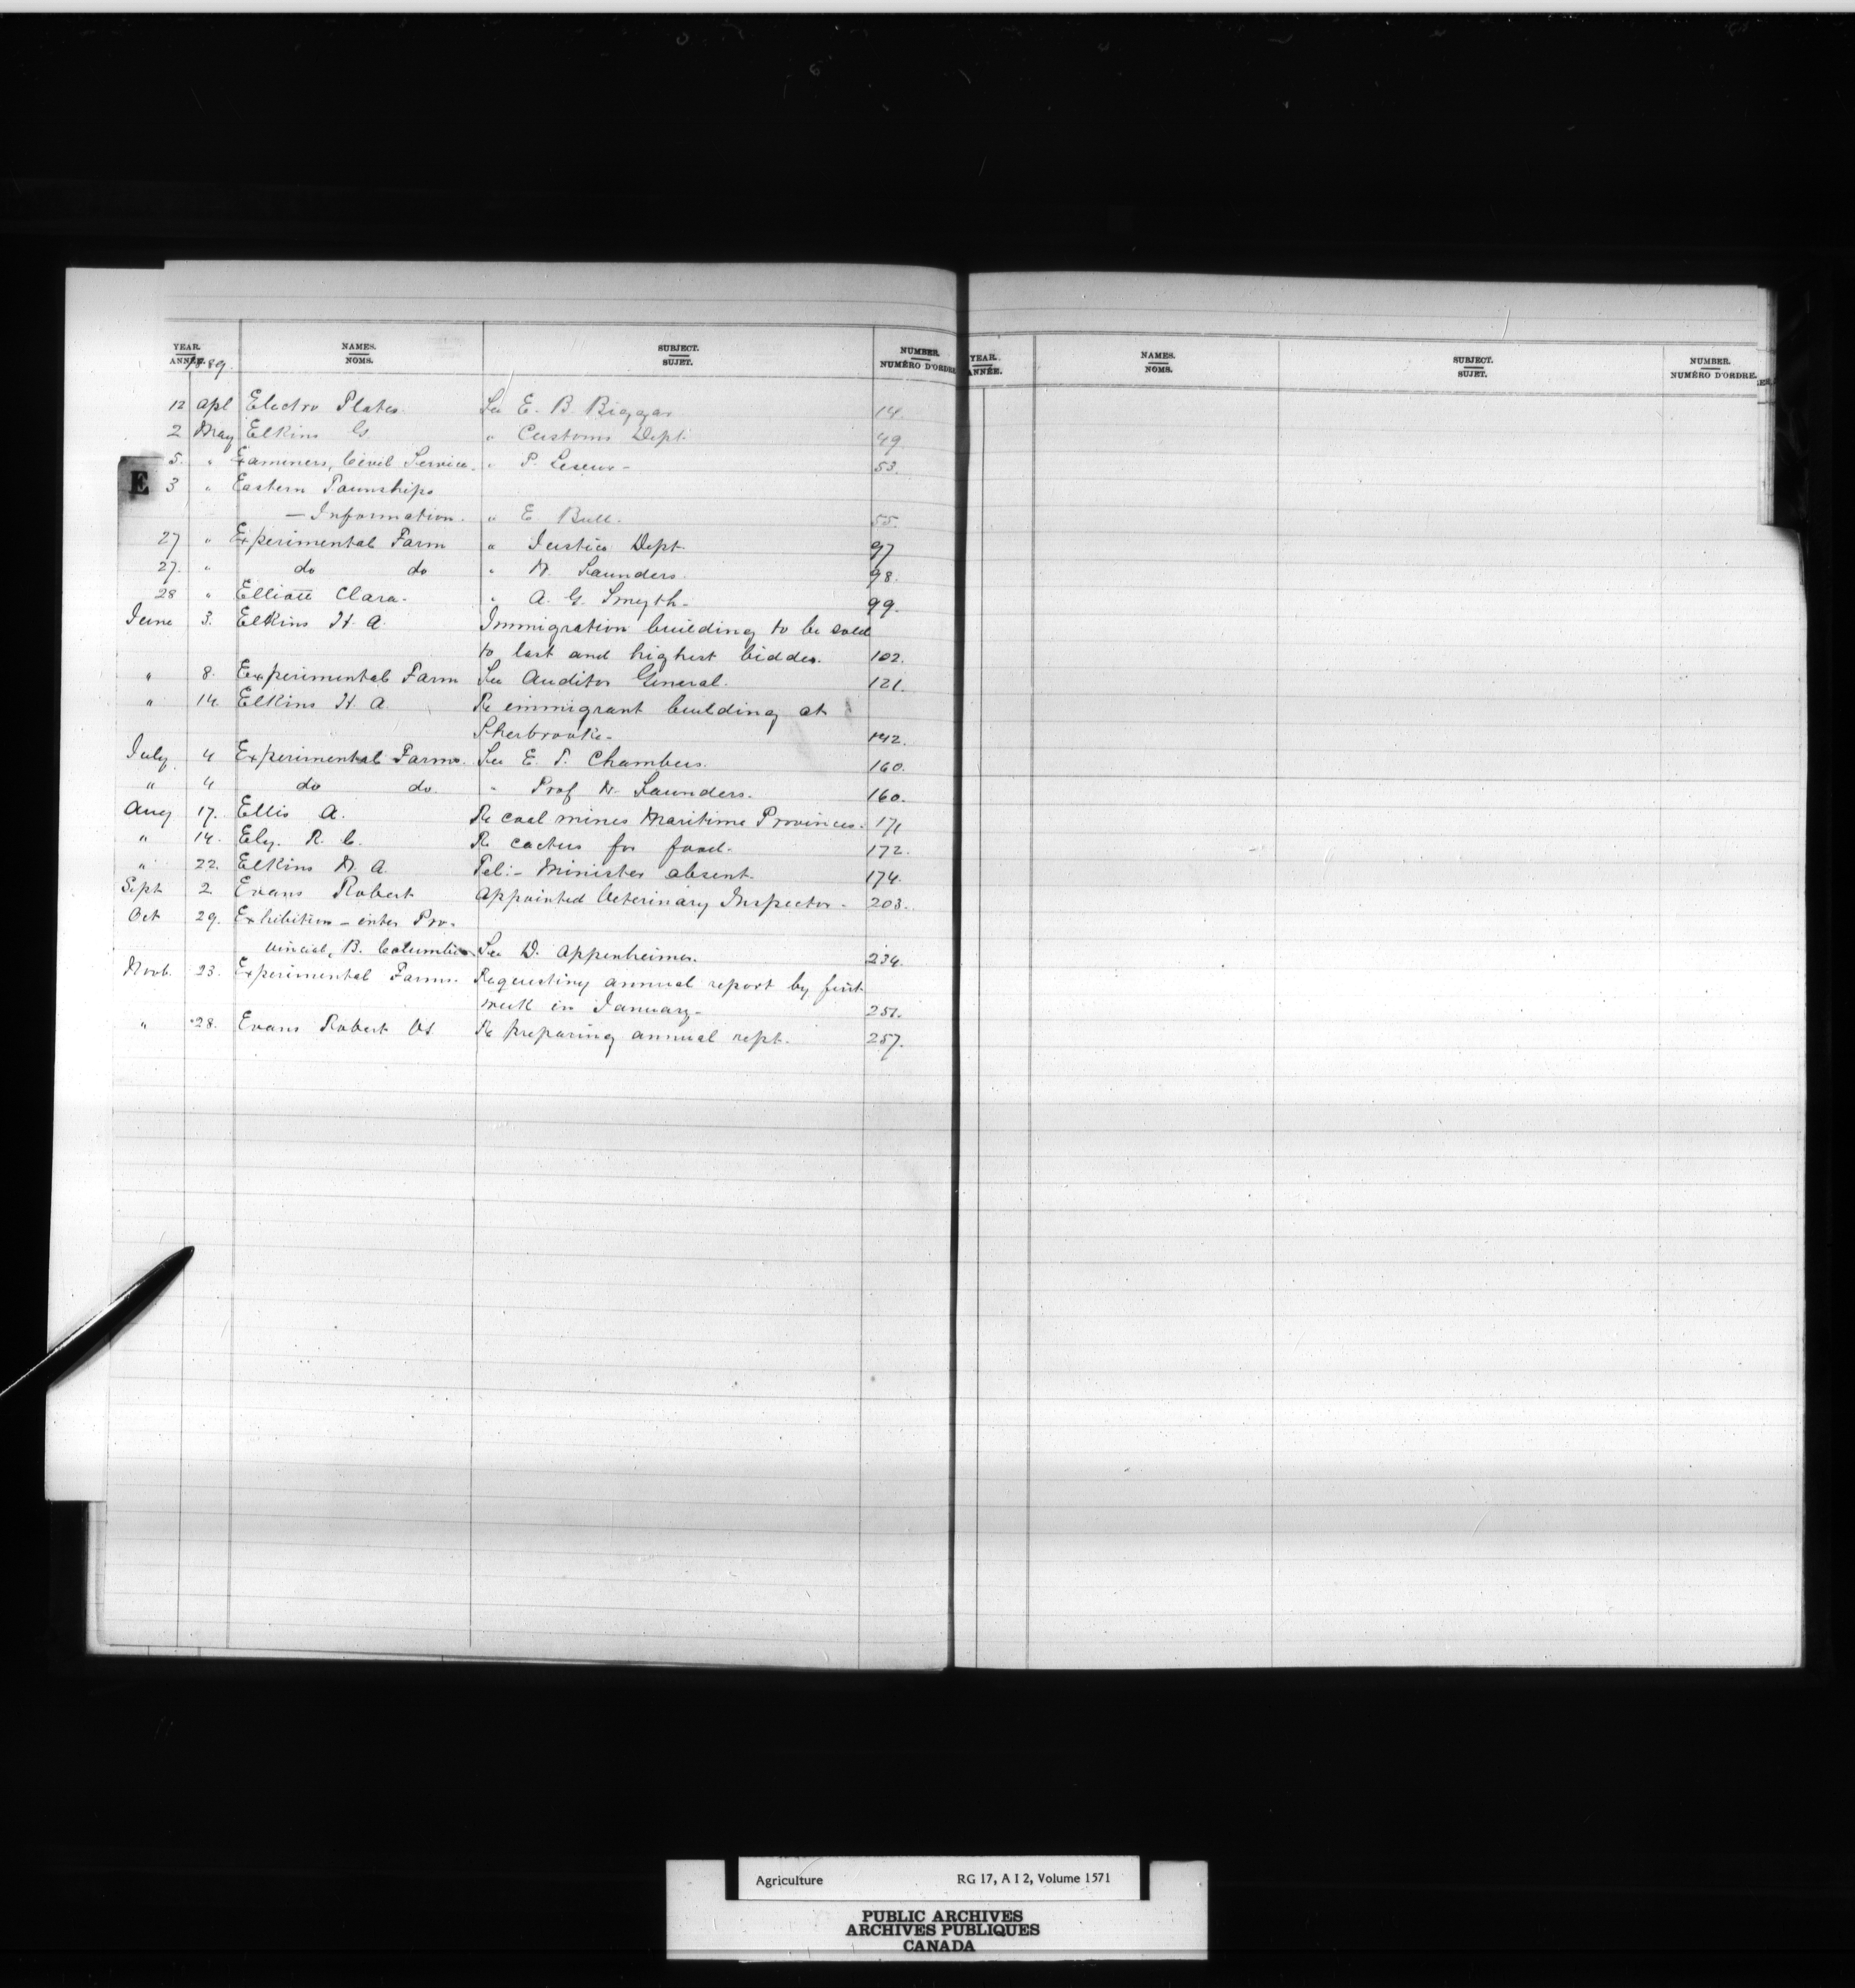 YEAR. NAMES. SUBJECT. NUMBER.
ANNÉE. 1889. NOMS. SUJET. NUMÉRO D'ORDRE
12 Apl Electro Plates. See E. B. Biggar 14.
2 May Elkins G " Customs Dept. 49
5. " Examiners, Civil Service. " P. Lesueur - 53.
E
3 " Eastern Townships
— Information. " E Bull. 55.
27 " Experimental Farm " Justice Dept. 97
27. " do do " W. Saunders. 98.
28 " Elliott Clara. " A. G. Smyth. 99.
June 3. Elkins H. A. Immigration building to be sold
to last and highest bidder. 102.
" 8. Experimental Farm See Auditor General. 121.
" 14. Elkins H. A Re immigrant building at
Sherbrooke. 142.
July 4 Experimental Farms. See E. T. Chambers. 160.
" 4 do do. " Prof W. Saunders. 160.
Aug 17. Ellis A. Re coal mines Maritime Provinces. 171
" 14. Ely. R. C. Re cactus for food. 172.
" 22. Elkins H. A. Tel:- Minister absent. 174.
Sept 2 Evans Robert Appointed Veterinary Inspector. 203.
Oct 29. Exhibition - inter Pro-
vincial, B. Columbia See D. Appenheimer. 234.
Novb. 23. Experimental Farms. Requesting annual report by first
week in January. 251.
" 28. Evans Robert VS Re preparing annual rept. 257.
YEAR. NAMES. SUBJECT. NUMBER.
ANNÉE. NOMS. SUJET. NUMÉRO D'ORDRE.
Agriculture RG 17, A I 2, Volume 1571
PUBLIC ARCHIVES
ARCHIVES PUBLIQUES
CANADA